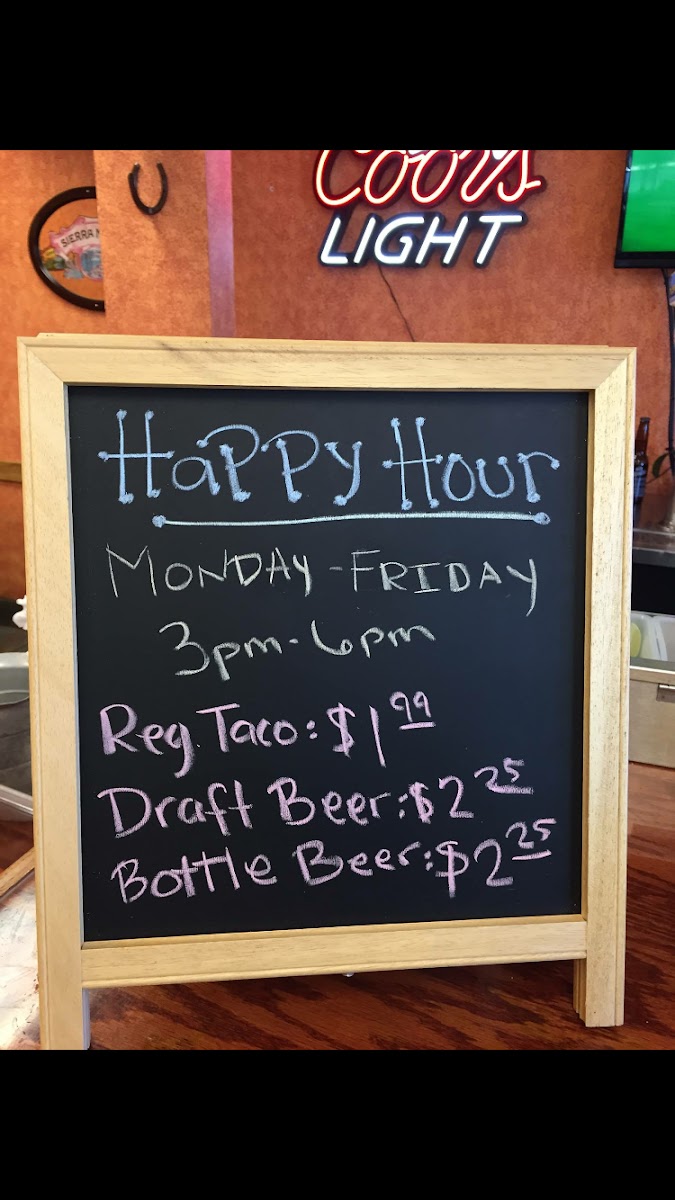 Coors
LIGHT
SIERRA N
Happy Hour
MONDAY - FRIDAY
3pm - 6pm
Reg. Taco: $1 99
Draft Beer: $2 25
Bottle Beer: $2 25